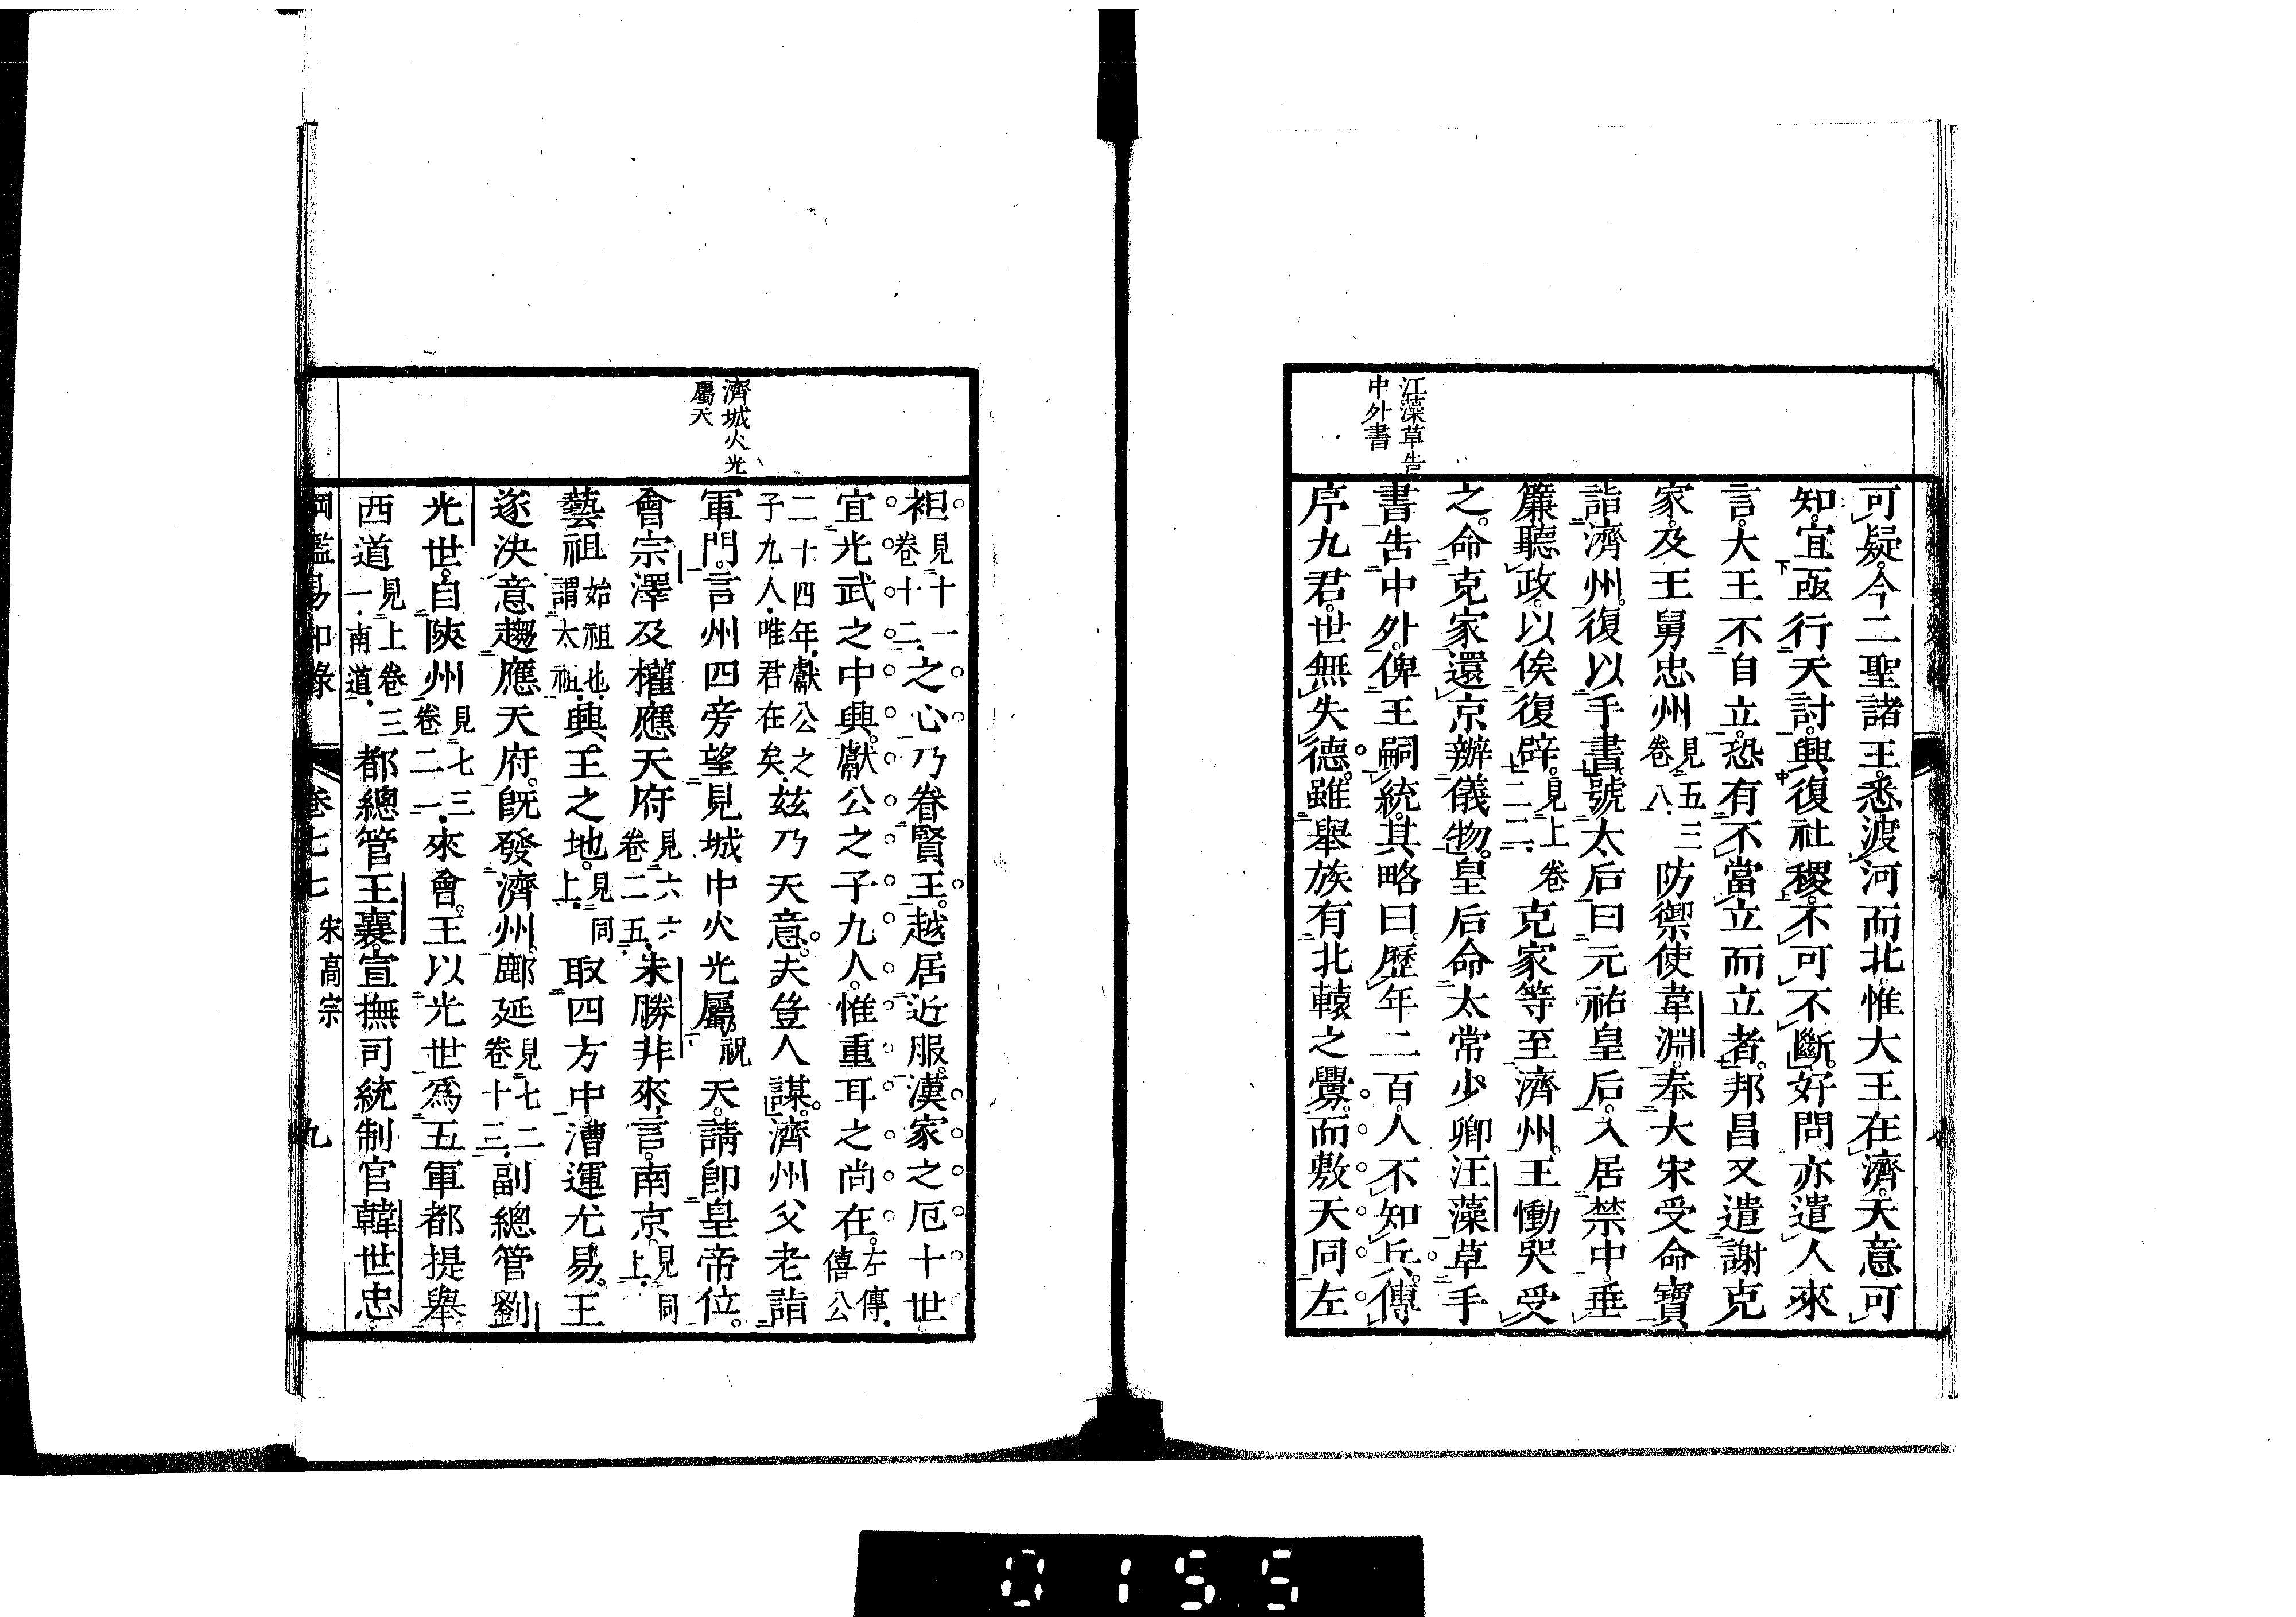 江藻草告
中外書
可疑。今二聖諸王。悉渡河而北。惟大王在濟。天意可
知。宜亟行天討。興復社稷。不可不斷。好問亦遣人來
言。大王不自立。恐有不當立而立者。邦昌又遣謝克
家。及王舅忠州見五三卷八。防禦使韋淵。奉大宋受命寶
詣濟州。復以手書號太后曰元祐皇后。入居禁中。垂
簾聽政。以俟復辟。見上卷二二。克家等至濟州。王慟哭受
之。命克家還京辦儀物。皇后命太常少卿汪藻草手
書告中外。俾王嗣統。其略曰。歷年二百。人不知兵。傳
序九君。世無失德。雖舉族有北轅之釁。而敷天同左
濟城火光
屬天
袒見十一卷十二。之心。乃眷賢王。越居近服。漢家之厄十世
宜光武之中興。獻公之子九人。惟重耳之尚在。左傳。僖公
二十四年。獻公之子九人。唯君在矣。玆乃天意。夫豈人謀。濟州父老詣
軍門。言州四旁望見城中火光屬祝天。請卽皇帝位。
會宗澤及權應天府見六六卷二五。朱勝非來言。南京。見同上。
藝祖始祖也。謂太祖。興王之地。見同上。取四方中。漕運尤易。王
遂決意趨應天府。旣發濟州。鄜延見七二卷十三。副總管劉
光世。自陝州見七三卷二一。來會。王以光世爲五軍都提舉。
西道見上卷三一。南道。都總管王襄。宣撫司統制官韓世忠
綱鑑易知錄 卷七七 宋高宗 九
0155